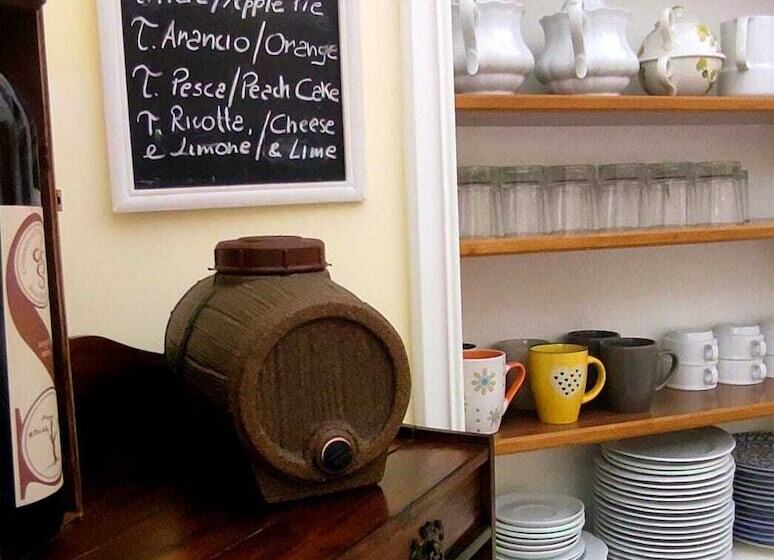 Apple Pie
T. Arancio/Orange
T. Pesca/Peach Cake
T. Ricotta,/Cheese
e Limone/& Lime